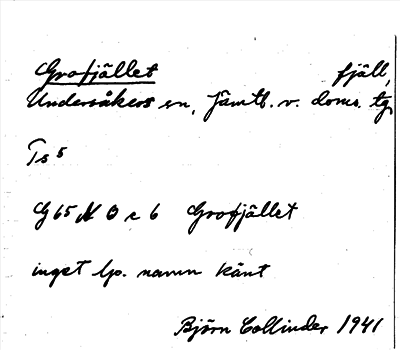 Grofjället fjäll,
Undersåkers sn, Jämtl. v. doms. tg
Ts 5
G 65 N O c 6 Grofjället
inget lp. namn känt
Björn Collinder 1941